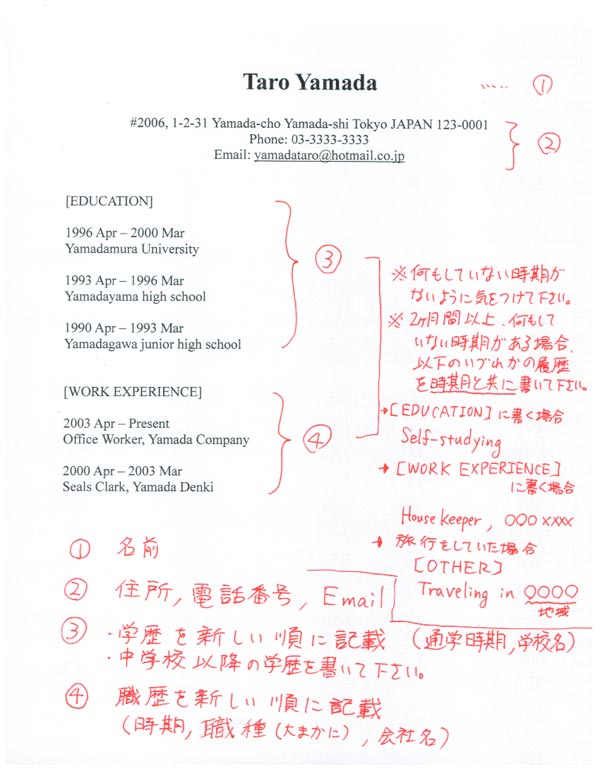 Taro Yamada
..... ①
#2006, 1-2-31 Yamada-cho Yamada-shi Tokyo JAPAN 123-0001
Phone: 03-3333-3333
Email: yamadataro@hotmail.co.jp
②
[EDUCATION]
1996 Apr – 2000 Mar
Yamadamura University
1993 Apr – 1996 Mar
Yamadayama high school
1990 Apr – 1993 Mar
Yamadagawa junior high school
③
[WORK EXPERIENCE]
2003 Apr – Present
Office Worker, Yamada Company
2000 Apr – 2003 Mar
Seals Clark, Yamada Denki
④
※何もしていない時期が
ないように気をつけて下さい。
※2ヶ月間以上、何もして
いない時期がある場合、
以下のいづれかの履歴
を時期と共に書いて下さい。
→[EDUCATION]に書く場合
Self-studying
→[WORK EXPERIENCE]
に書く場合
House keeper, ○○○ xxxx
→ 旅行をしていた場合
[OTHER]
Traveling in ○○○○
地域
① 名前
② 住所, 電話番号, Email
③ ・学歴を新しい順に記載 (通学時期,学校名)
・中学校以降の学歴を書いて下さい。
④ 職歴を新しい順に記載
(時期, 職種(大まかに), 会社名)